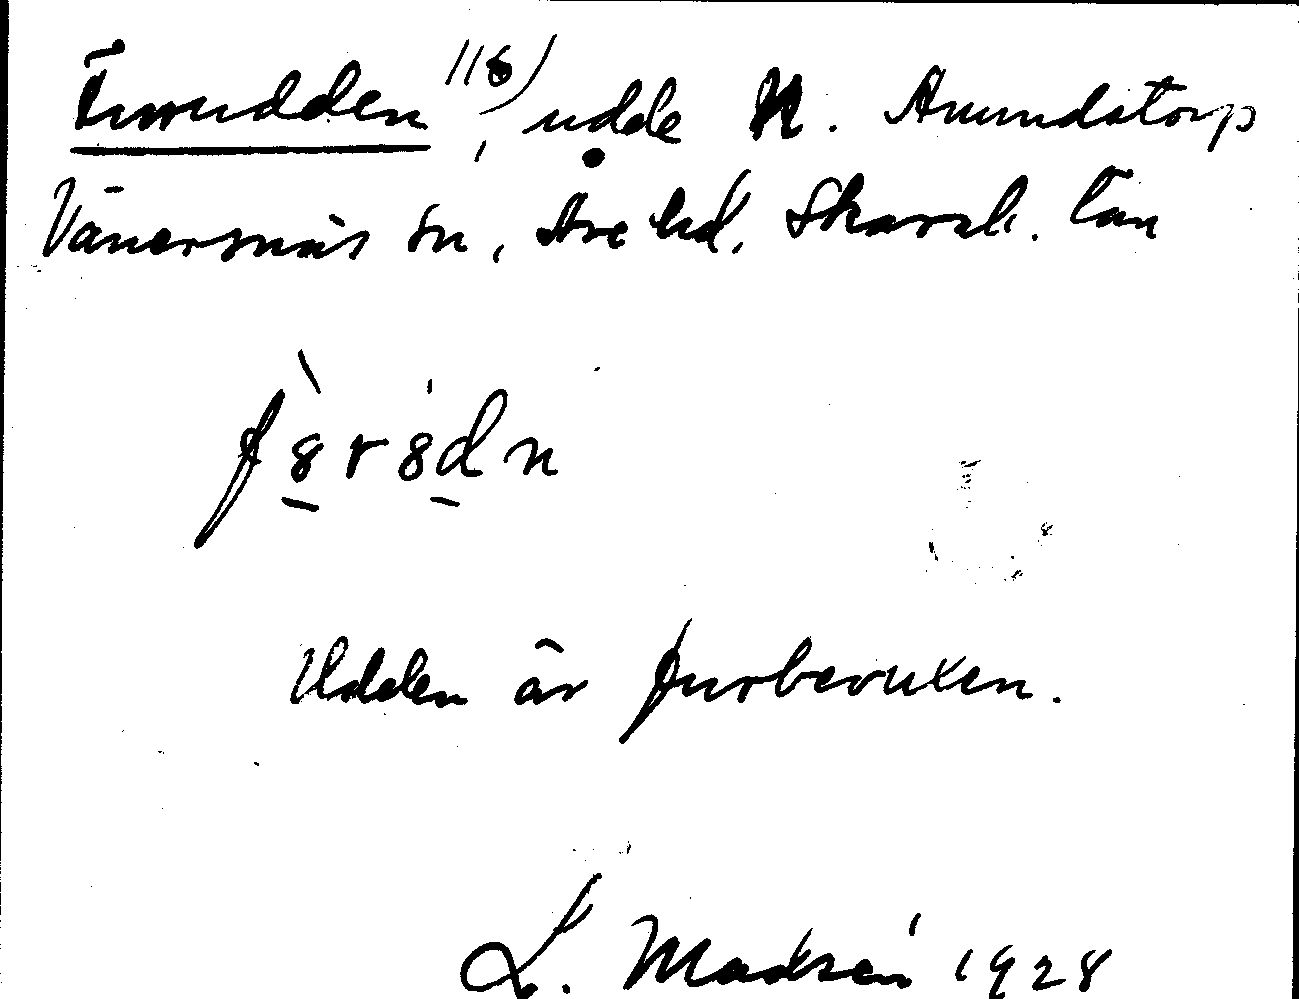 Furudden 116), udde N. Amundstorp
Vänersnäs sn, Åse hd, Skarab. län
f8r8dn
Udden är furbevuxen.
L. Madsén 1928